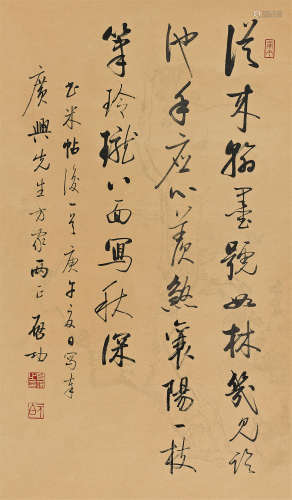 從来翰墨號如林幾見臨
池手應心羨煞襄陽一枝
筆玲瓏八面寫秋深
書米帖後一首庚午夏日寫奉
廣興先生方家兩正啟功